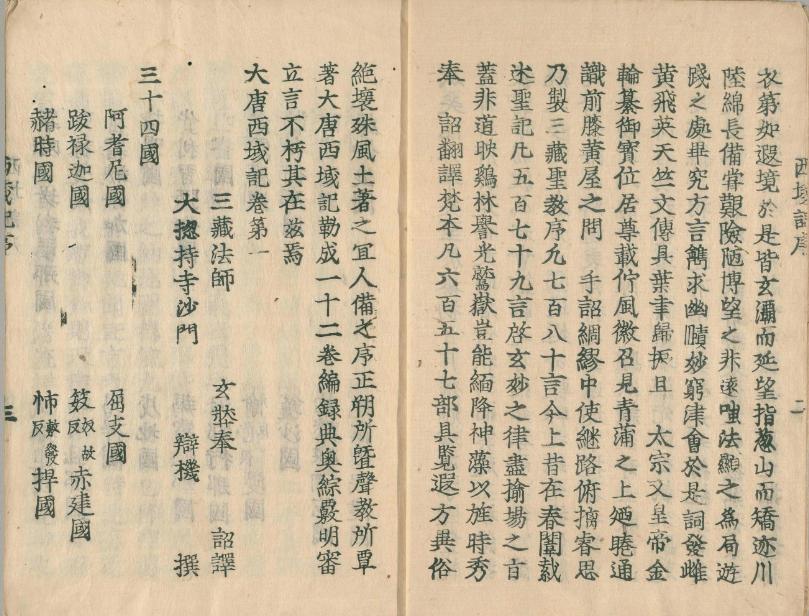 衣第如遐境於是皆玄灞而延望指葱山而矯迹川
陸綿長備嘗艱險陋博望之非遠嗤法顯之為局遊
踐之處畢究方言鐫求幽賾妙窮津會於是詞發雌
黃飛英天竺文傳具葉聿歸振旦 太宗文皇帝金
輪纂御寶位居尊載佇風微召見青蒲之上廼睠通
識前膝黃屋之間 手詔綢繆中使継路俯摛睿思
乃製三藏聖教序凢七百八十言今上昔在春闈裁
述聖記凢五百七十九言啓玄妙之律盡揄場之㫖
蓋非道映鷄林譽光鷲嶽豈能緬降神藻以旌時秀
奉 詔翻譯梵本凢六百五十七部具覧遐方異俗
絶壤殊風土著之宜人備之序正朔所曁聲教所覃
著大唐西域記勒成一十二卷編録典奥綜覈明審
立言不朽其在茲焉
大唐西域記卷第一
三藏法師 玄奘奉 詔譯
大摠持寺沙門 辯機 撰
三十四國
阿耆尼國 屈支國
跋禄迦國 笯奴故反赤建國
赭時國 㤄敷發反捍國
西域記序
二
西域記序
三